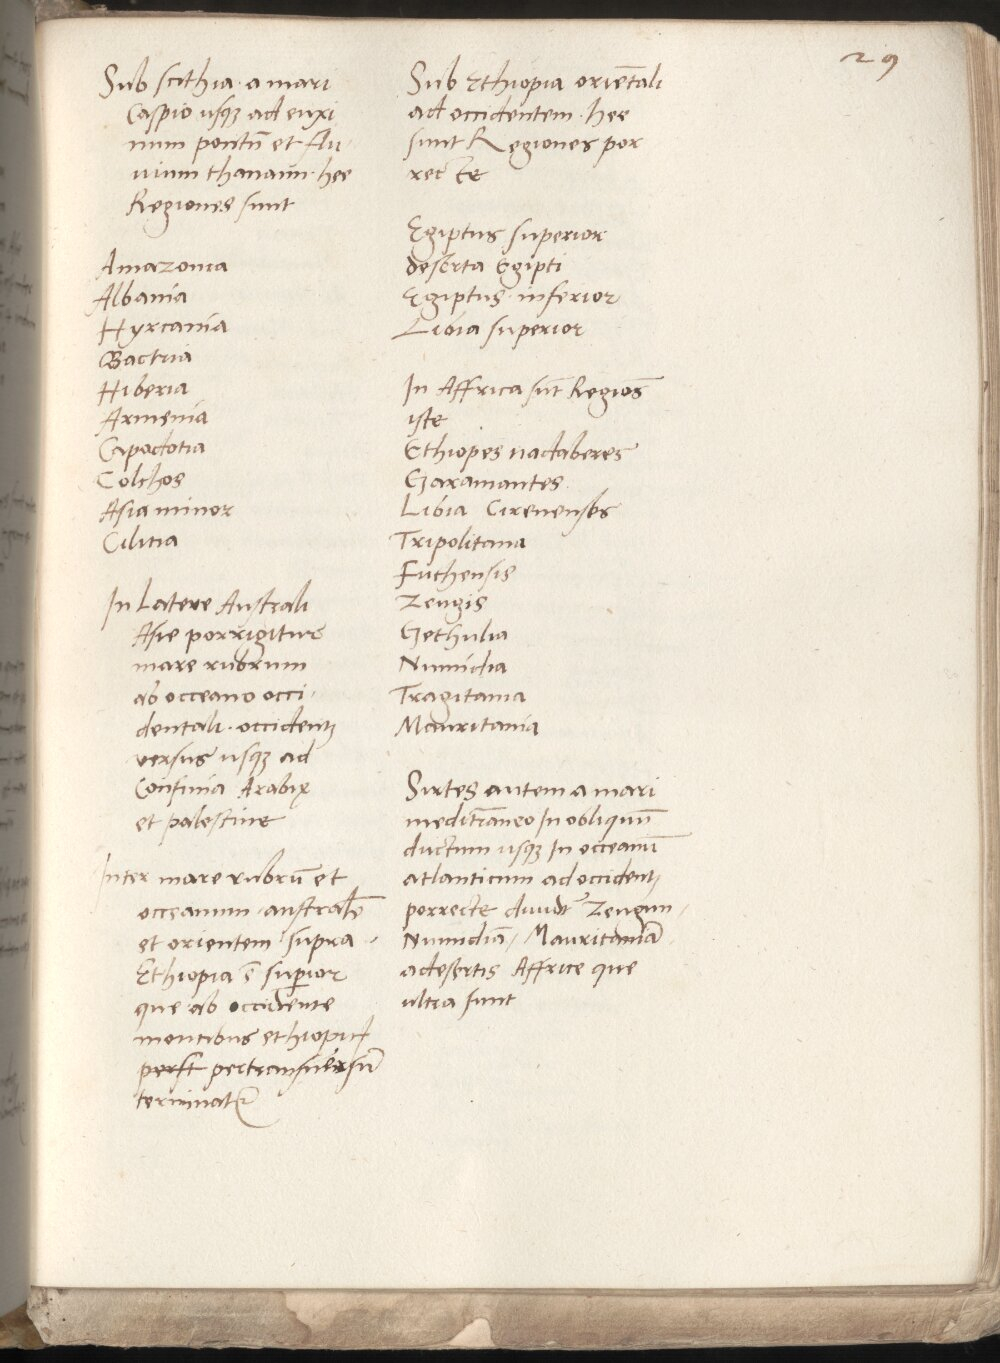 29
Sub scithia a mari
Caspio usqꝫ ad euxi
num pontū et flu
uium thanaim · hee
Regiones sunt
Amazonia
Albania
Hyrcania
Bactria
Hiberia
Armenia
Capadotia
Colchos
Asia minor
Cilitia
In Latere Australi
Asie porrigitur
mare rubrum
ab occeano occi
dentali · occidentꝫ
versus usqꝫ ad
Confinia Arabię
et palestine
Inter mare rubrū et
occeanum australē
et orientem supra
Ethiopia ē superior
que ab occidente
montibus ethiopie
pertransuersū
terminatr
Sub Ethiopia oriētali
ad occidentem · hee
sunt Regiones por
recte
Egiptus superior
deserta Egipti
Egiptus inferior
Libia superior
In Affrica sūt Regioēs
iste
Ethiopes nadaberes
Garamantes
Libia Cirenenses
Tripolitana
Futhensis
Zeugis
Gethulia
Numidia
Tragitania
Mauritania
Sirtes autem a mari
meditraneo In obliquū
ductum usqꝫ In occeanū
atlanticum ad occidentꝫ
porrecte diuidt Zeugim
Numidiā / Mauritaniā
a desertis Affrice que
ultra sunt